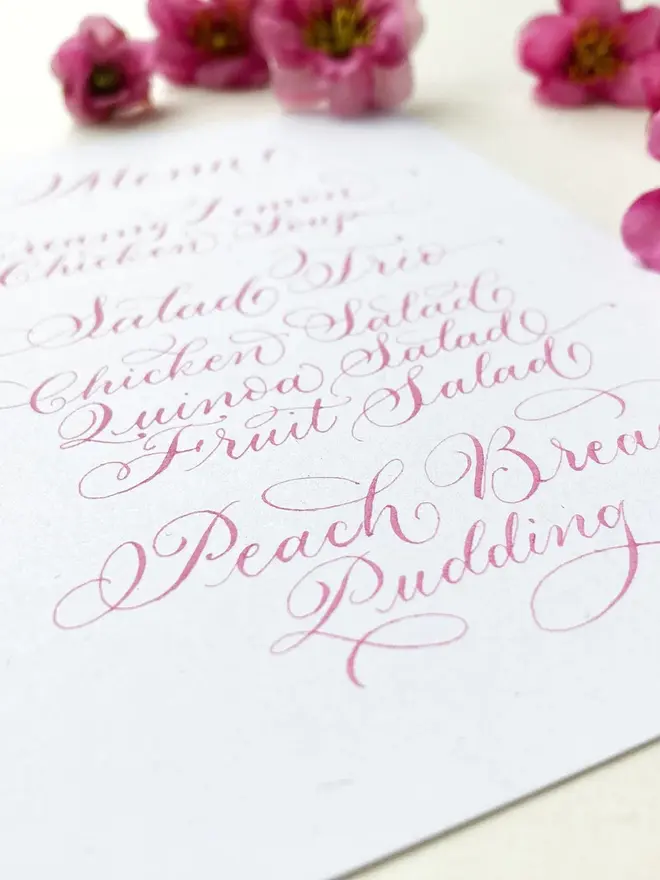 Menu
Creamy Lemon
Chicken Soup
Salad Trio
Chicken Salad
Quinoa Salad
Fruit Salad
Peach Brea
Pudding